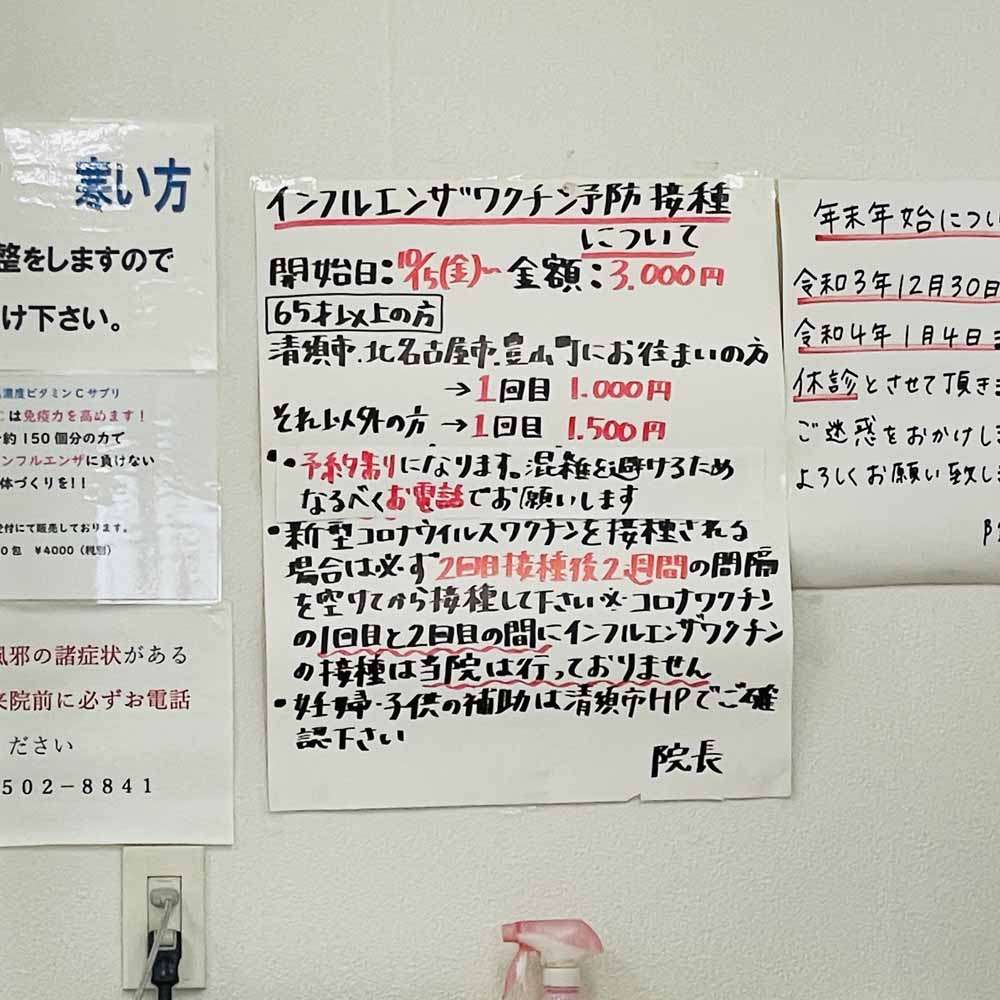 寒い方
整をしますので
け下さい。
濃度ビタミンCサプリ
Cは免疫力を高めます！
約150個分の力で
ンフルエンザに負けない
体づくりを！！
受付にて販売しております。
0包 ¥4000（税別）
風邪の諸症状がある
来院前に必ずお電話
ださい
502-8841
インフルエンザワクチン予防接種
について
開始日：10/15(金)〜 金額：3.000円
65才以上の方
清須市.北名古屋市.豊山町にお住まいの方
→1回目 1.000円
それ以外の方→1回目 1.500円
・予約制になります。混雑を避けるため
なるべくお電話でお願いします
・新型コロナウイルスワクチンを接種される
場合は必ず2回目接種後2週間の間隔
を空けてから接種して下さい※コロナワクチン
の1回目と2回目の間にインフルエンザワクチン
の接種は当院は行っておりません
・妊婦・子供の補助は清須市HPでご確
認下さい
院長
年末年始につい
令和3年12月30日
令和4年1月4日
休診とさせて頂きま
ご迷惑をおかけし
よろしくお願い致しま